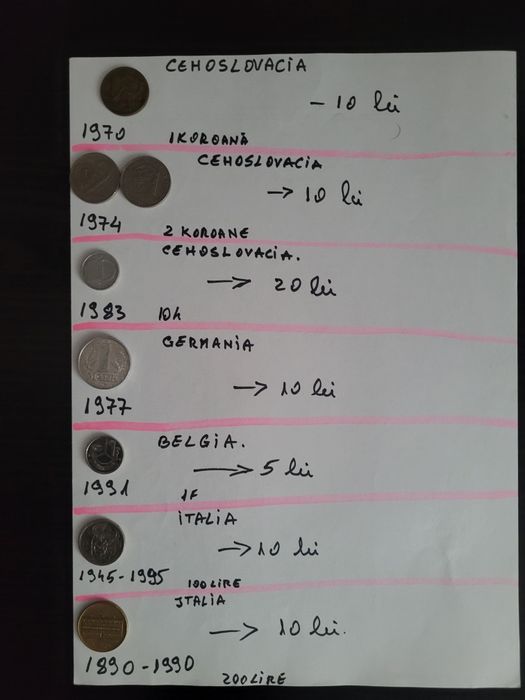 CEHOSLOVACIA
- 10 lei
1970 1KOROANĂ
CEHOSLOVACIA
→ 10 lei
1974 2 KOROANE
CEHOSLOVACIA.
→ 20 lei
1983 10h
GERMANIA
→ 10 lei
1977
BELGIA.
→ 5 lei
1991 1F
ITALIA
→ 10 lei
1945-1995 100LIRE
ITALIA
→ 10 lei.
1890-1990 200LIRE